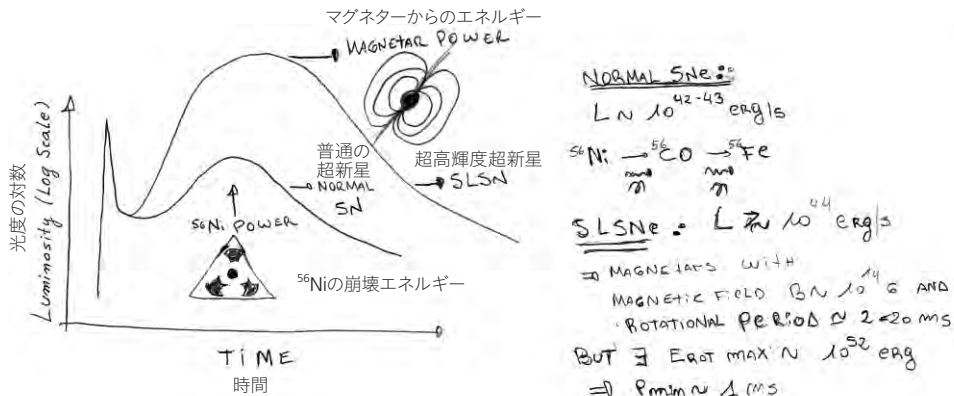 マグネターからのエネルギー
MAGNETAR POWER
光度の対数
Luminosity (Log Scale)
普通の
超新星
NORMAL
SN
超高輝度超新星
SLSN
⁵⁶Ni POWER
⁵⁶Niの崩壊エネルギー
TIME
時間
NORMAL SNe:
L ~ 10⁴²⁻⁴³ erg/s
⁵⁶Ni → ⁵⁶CO → ⁵⁶Fe
SLSNe: L ≳ 10⁴⁴ erg/s
⇒ MAGNETARS WITH
MAGNETIC FIELD B ~ 10¹⁴ G AND
ROTATIONAL PERIOD ~ 2-20 ms
BUT ∃ EROT MAX ~ 10⁵² erg
⇒ Pmin ~ 1 ms